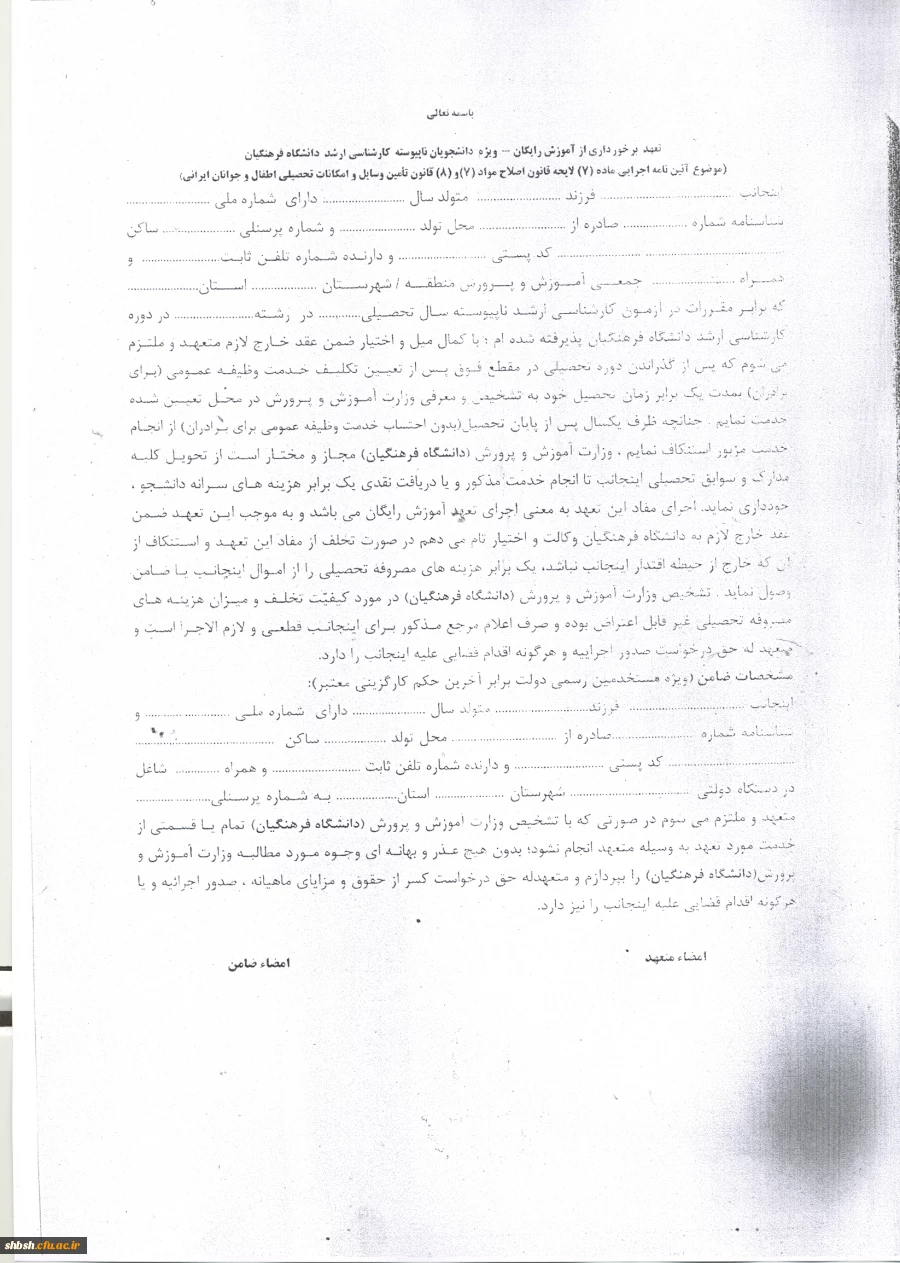 باسمه تعالی
تعهد برخورداری از آموزش رایگان – ویژه دانشجویان ناپیوسته کارشناسی ارشد دانشگاه فرهنگیان
(موضوع آئین نامه اجرایی ماده (۷) لایحه قانون اصلاح مواد (۷)و (۸) قانون تأمین وسایل و امکانات تحصیلی اطفال و جوانان ایرانی)
اینجانب .................................. فرزند ....................... متولد سال ......................: دارای شماره ملی .......................
شناسنامه شماره .................. صادره از ....................... محل تولد ..................... و شماره پرسنلی .................... ساکن
............................................................ کد پستی ........................ و دارنده شماره تلفن ثابت...................... و
همراه ....................... جمعی آموزش و پرورش منطقه / شهرستان .................. استان...................
که برابر مقررات در آزمون کارشناسی ارشد ناپیوسته سال تحصیلی............ در رشته...................... در دوره
کارشناسی ارشد دانشگاه فرهنگیان پذیرفته شده ام ؛ با کمال میل و اختیار ضمن عقد خارج لازم متعهد و ملتزم
می شوم که پس از گذراندن دوره تحصیلی در مقطع فوق پس از تعیین تکلیف خدمت وظیفه عمومی (برای
برادران) بمدت یک برابر زمان تحصیل خود به تشخیص و معرفی وزارت آموزش و پرورش در محل تعیین شده
خدمت نمایم . چنانچه ظرف یکسال پس از پایان تحصیل(بدون احتساب خدمت وظیفه عمومی برای برادران) از انجام
خدمت مزبور استنکاف نمایم ، وزارت آموزش و پرورش (دانشگاه فرهنگیان) مجاز و مختار است از تحویل کلیه
مدارک و سوابق تحصیلی اینجانب تا انجام خدمت مذکور و یا دریافت نقدی یک برابر هزینه های سرانه دانشجو ،
خودداری نماید. اجرای مفاد این تعهد به معنی اجرای تعهد آموزش رایگان می باشد و به موجب این تعهد ضمن
عقد خارج لازم به دانشگاه فرهنگیان وکالت و اختیار تام می دهم در صورت تخلف از مفاد این تعهد و استنکاف از
آن که خارج از حیطه اقتدار اینجانب نباشد، یک برابر هزینه های مصروفه تحصیلی را از اموال اینجانب یا ضامن
وصول نماید . تشخیص وزارت آموزش و پرورش (دانشگاه فرهنگیان) در مورد کیفیّت تخلف و میزان هزینه های
مصروفه تحصیلی غیر قابل اعتراض بوده و صرف اعلام مرجع مذکور برای اینجانب قطعی و لازم الاجرا است و
متعهد له حق درخواست صدور اجراییه و هرگونه اقدام قضایی علیه اینجانب را دارد.
مشخصات ضامن (ویژه مستخدمین رسمی دولت برابر آخرین حکم کارگزینی معتبر):
اینجانب ............................... فرزند......................... متولد سال .................... دارای شماره ملی ....................... و
شناسنامه شماره ......................صادره از ............................ محل تولد ................. ساکن ......................................
................................... کد پستی ........................ و دارنده شماره تلفن ثابت ........................ و همراه ............ شاغل
در دستگاه دولتی ................................ شهرستان ................... استان................. به شماره پرسنلی....................
متعهد و ملتزم می شوم در صورتی که با تشخیص وزارت آموزش و پرورش (دانشگاه فرهنگیان) تمام یا قسمتی از
خدمت مورد تعهد به وسیله متعهد انجام نشود؛ بدون هیچ عذر و بهانه ای وجوه مورد مطالبه وزارت آموزش و
پرورش(دانشگاه فرهنگیان) را بپردازم و متعهدله حق درخواست کسر از حقوق و مزایای ماهیانه ، صدور اجرائیه و یا
هرگونه اقدام قضایی علیه اینجانب را نیز دارد.
امضاء متعهد
امضاء ضامن
shbsh.cfu.ac.ir